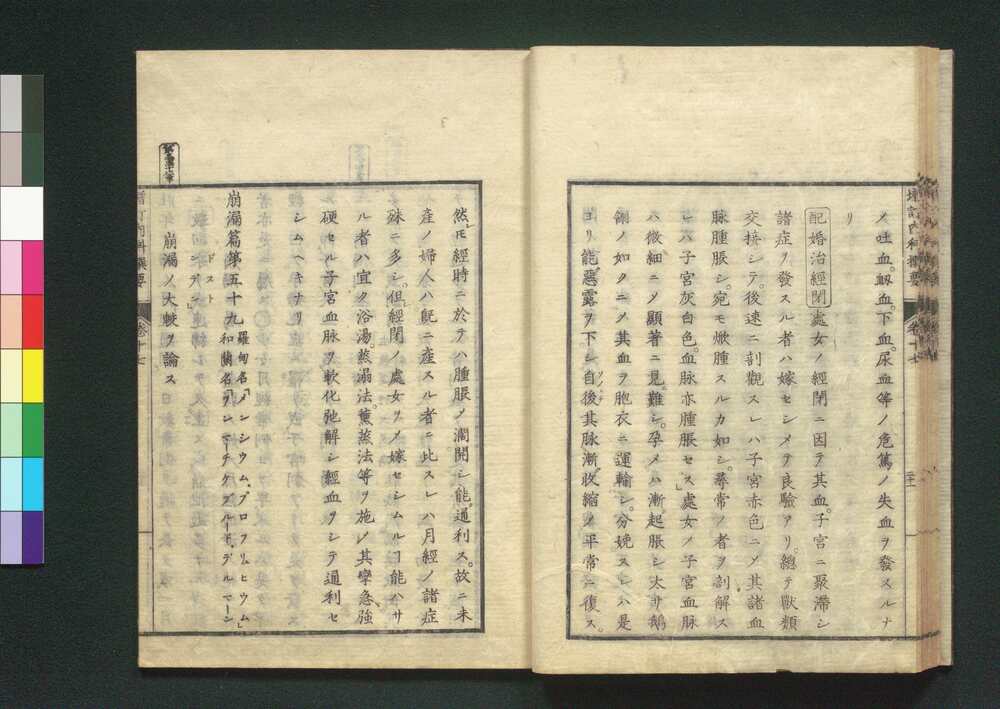 増訂内科撰要
卷十七
ノ吐血。衂血。下血。尿血等ノ危篤ノ失血ヲ發スルナ
リ
配婚治經閉 處女ノ經閉ニ因テ其血。子宮ニ聚滯シ
諸症ヲ發スル者ハ嫁セシメテ良驗アリ。總テ獸類
交接シテ。後速ニ剖觀スレハ子宮赤色ニメ其諸血
脉腫脹シ。宛モ焮腫スルカ如シ。尋常ノ者ヲ剖解ス
レハ子宮灰白色。血脉亦腫脹セス。處女ノ子宮血脉
ハ微細ニメ顯著ニ見難シ。孕メハ漸起脹シ大サ鵝
翎ノ如クニメ其血ヲ胞衣ニ運輸シ。分娩スレハ是
ヨリ能惡露ヲ下シ自後其脉漸收縮ノ平常ニ復ス。
然モ經時ニ於テハ腫脹ノ濶開シ能通利ス。故ニ未
產ノ婦人ハ旣ニ產スル者ニ此スレハ月經ノ諸症
殊ニ多シ。但經閉ノ處女ヲメ嫁セシムルヿ能ハサ
ル者ハ宜ク浴湯。蒸溻法。薰蒸法等ヲ施ノ其攣急強
硬セル子宮血脉ヲ軟化弛解シ經血ヲシテ通利セ
シムヘキナリ
崩漏篇第五十九 羅甸名「メンシウム、プロフリュヒウム」
和蘭名「ヲンマーチゲブルード, デルマーン
ドスト
ンデン」
崩漏ノ大較ヲ論ス
増訂內科撰要
卷十七